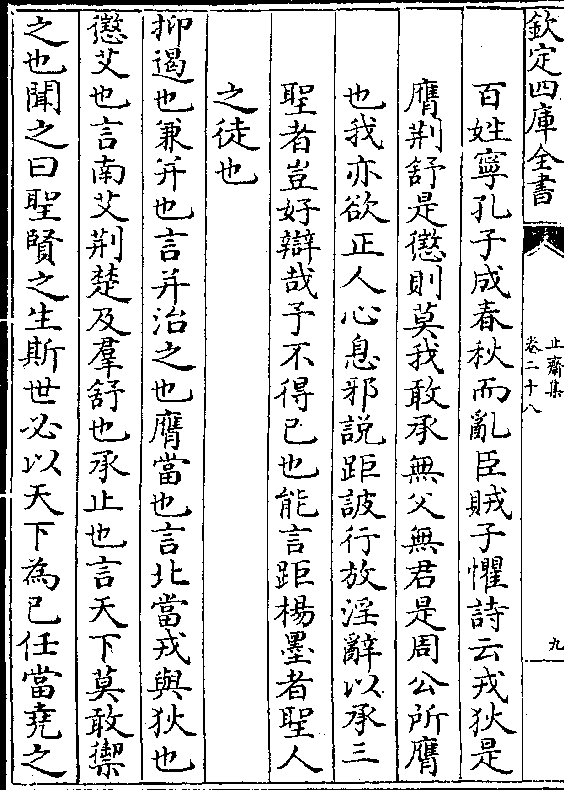 欽定四庫全書
止齋集
卷二十八
九
百姓寧孔子成春秋而亂臣賊子懼詩云戎狄是
膺荆舒是懲則莫我敢承無父無君是周公所膺
也我亦欲正人心息邪説距詖行放淫辭以承三
聖者豈好辯哉予不得已也能言距楊墨者聖人
之徒也
抑遏也兼并也言并治之也膺當也言北當戎與狄也
懲艾也言南艾荆楚及羣舒也承止也言天下莫敢禦
之也聞之曰聖賢之生斯世必以天下為已任當堯之